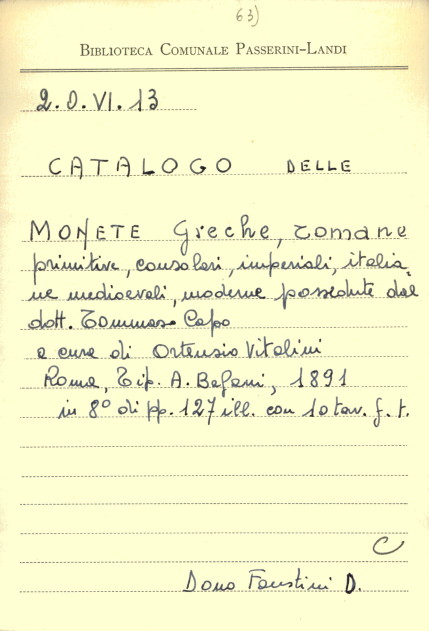 63)
BIBLIOTECA COMUNALE PASSERINI-LANDI
2.O.VI.13
CATALOGO DELLE
MONETE Greche, romane
primitive, consolari, imperiali, italia,
ne medioevali, moderne possedute dal
dott. Tommaso Capo
a cura di Ortensio Vitalini
Roma, Tip. A. Befani, 1891
in 8° di pp. 127 ill. con 10 tav. f. t.
C
Dono Faustini D.